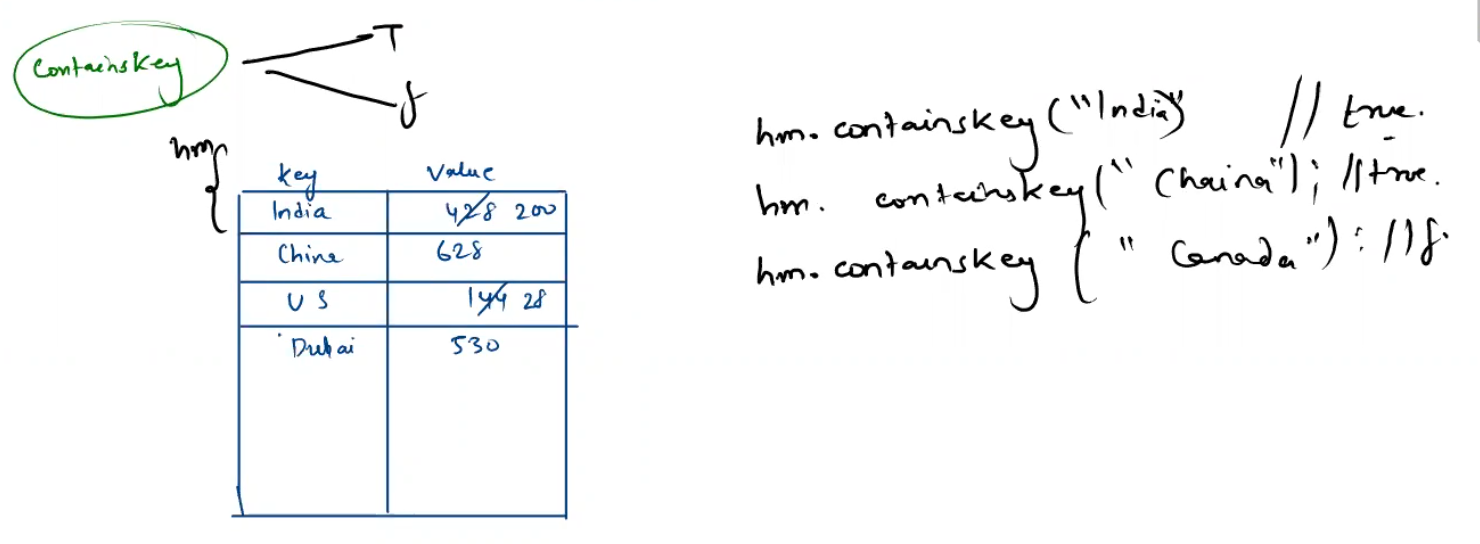 ContainsKey
T
f
hm
key Value
India 428 200
China 628
US 144 28
Dubai 530
hm. containskey ("India") // true.
hm. containskey (" Chaina"); // true.
hm. containskey (" Canada") : // f.